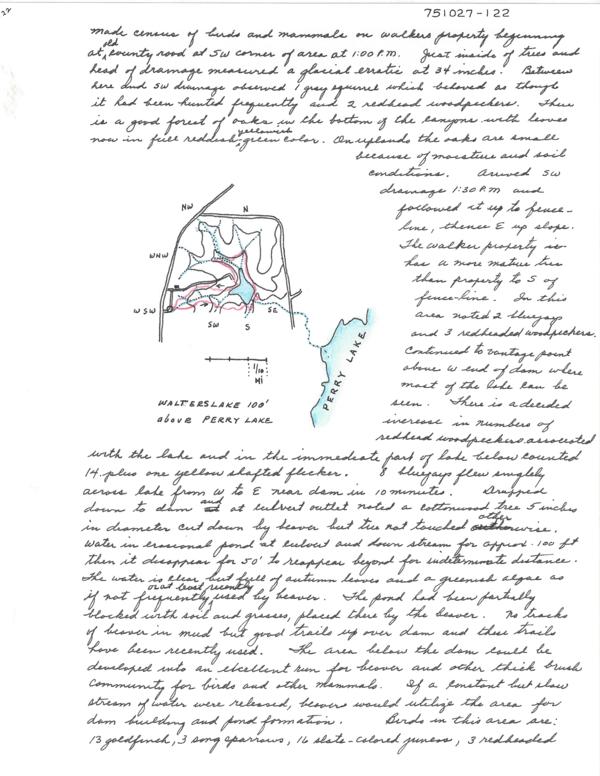 751027-122
made census of birds and mammals on walkers property beginning
at old county road at SW corner of area at 1:00 P.M. Just inside of trees and
head of drainage measured a glacial erratic at 34 inches. Between
here and SW drainage observed 1 gray squirrel which behaved as though
it had been hunted frequently and 2 redhead woodpeckers. There
is a good forest of oaks in the bottom of the canyons with leaves
now in full reddish, yellowish green color. On uplands the oaks are small
because of moisture and soil
conditions. Arrived SW
drainage 1:30 P.M and
followed it up to fence-
line, thence E up slope.
The walker property is
has a more mature
than property to S of
fence-line. In this
area noted 2 bluejays
and 3 redheaded woodpeckers.
Continued to vantage point
above W end of dam where
most of the lake can be
seen. There is a decided
increase in numbers of
redhead woodpeckers associated
NW
N
WNW
WSW
SW
S
SE
1/10
MI
PERRY LAKE
WALTERSLAKE 100'
above PERRY LAKE
with the lake and in the immediate part of lake below counted
14 plus one yellow shafted flicker. 8 bluejays flew singlely
across lake from W to E near dam in 10 minutes. Dropped
down to dam and at culvert outlet noted a cottonwood tree 5 inches
in diameter cut down by beaver but tree not touched otherwise.
Water in erosional pond at culvert and down stream for approx. 100 ft
then it disappear for 50' to reappear beyond for indeterminate distance.
The water is clear but full of autumn leaves and a greenish algae as
if not frequently or at least recently used by beaver. The pond had been partially
blocked with soil and grasses, placed there by the beaver. No tracks
of beaver in mud but good trails up over dam and these trails
have been recently used. The area below the dam could be
developed into an excellent run for beaver and other thick brush
community for birds and other mammals. If a constant but slow
stream of water were released, beavers would utilize the area for
dam building and pond formation. Birds in this area are:
13 goldfinch, 3 song sparrows, 16 slate-colored juncos, 3 redheaded